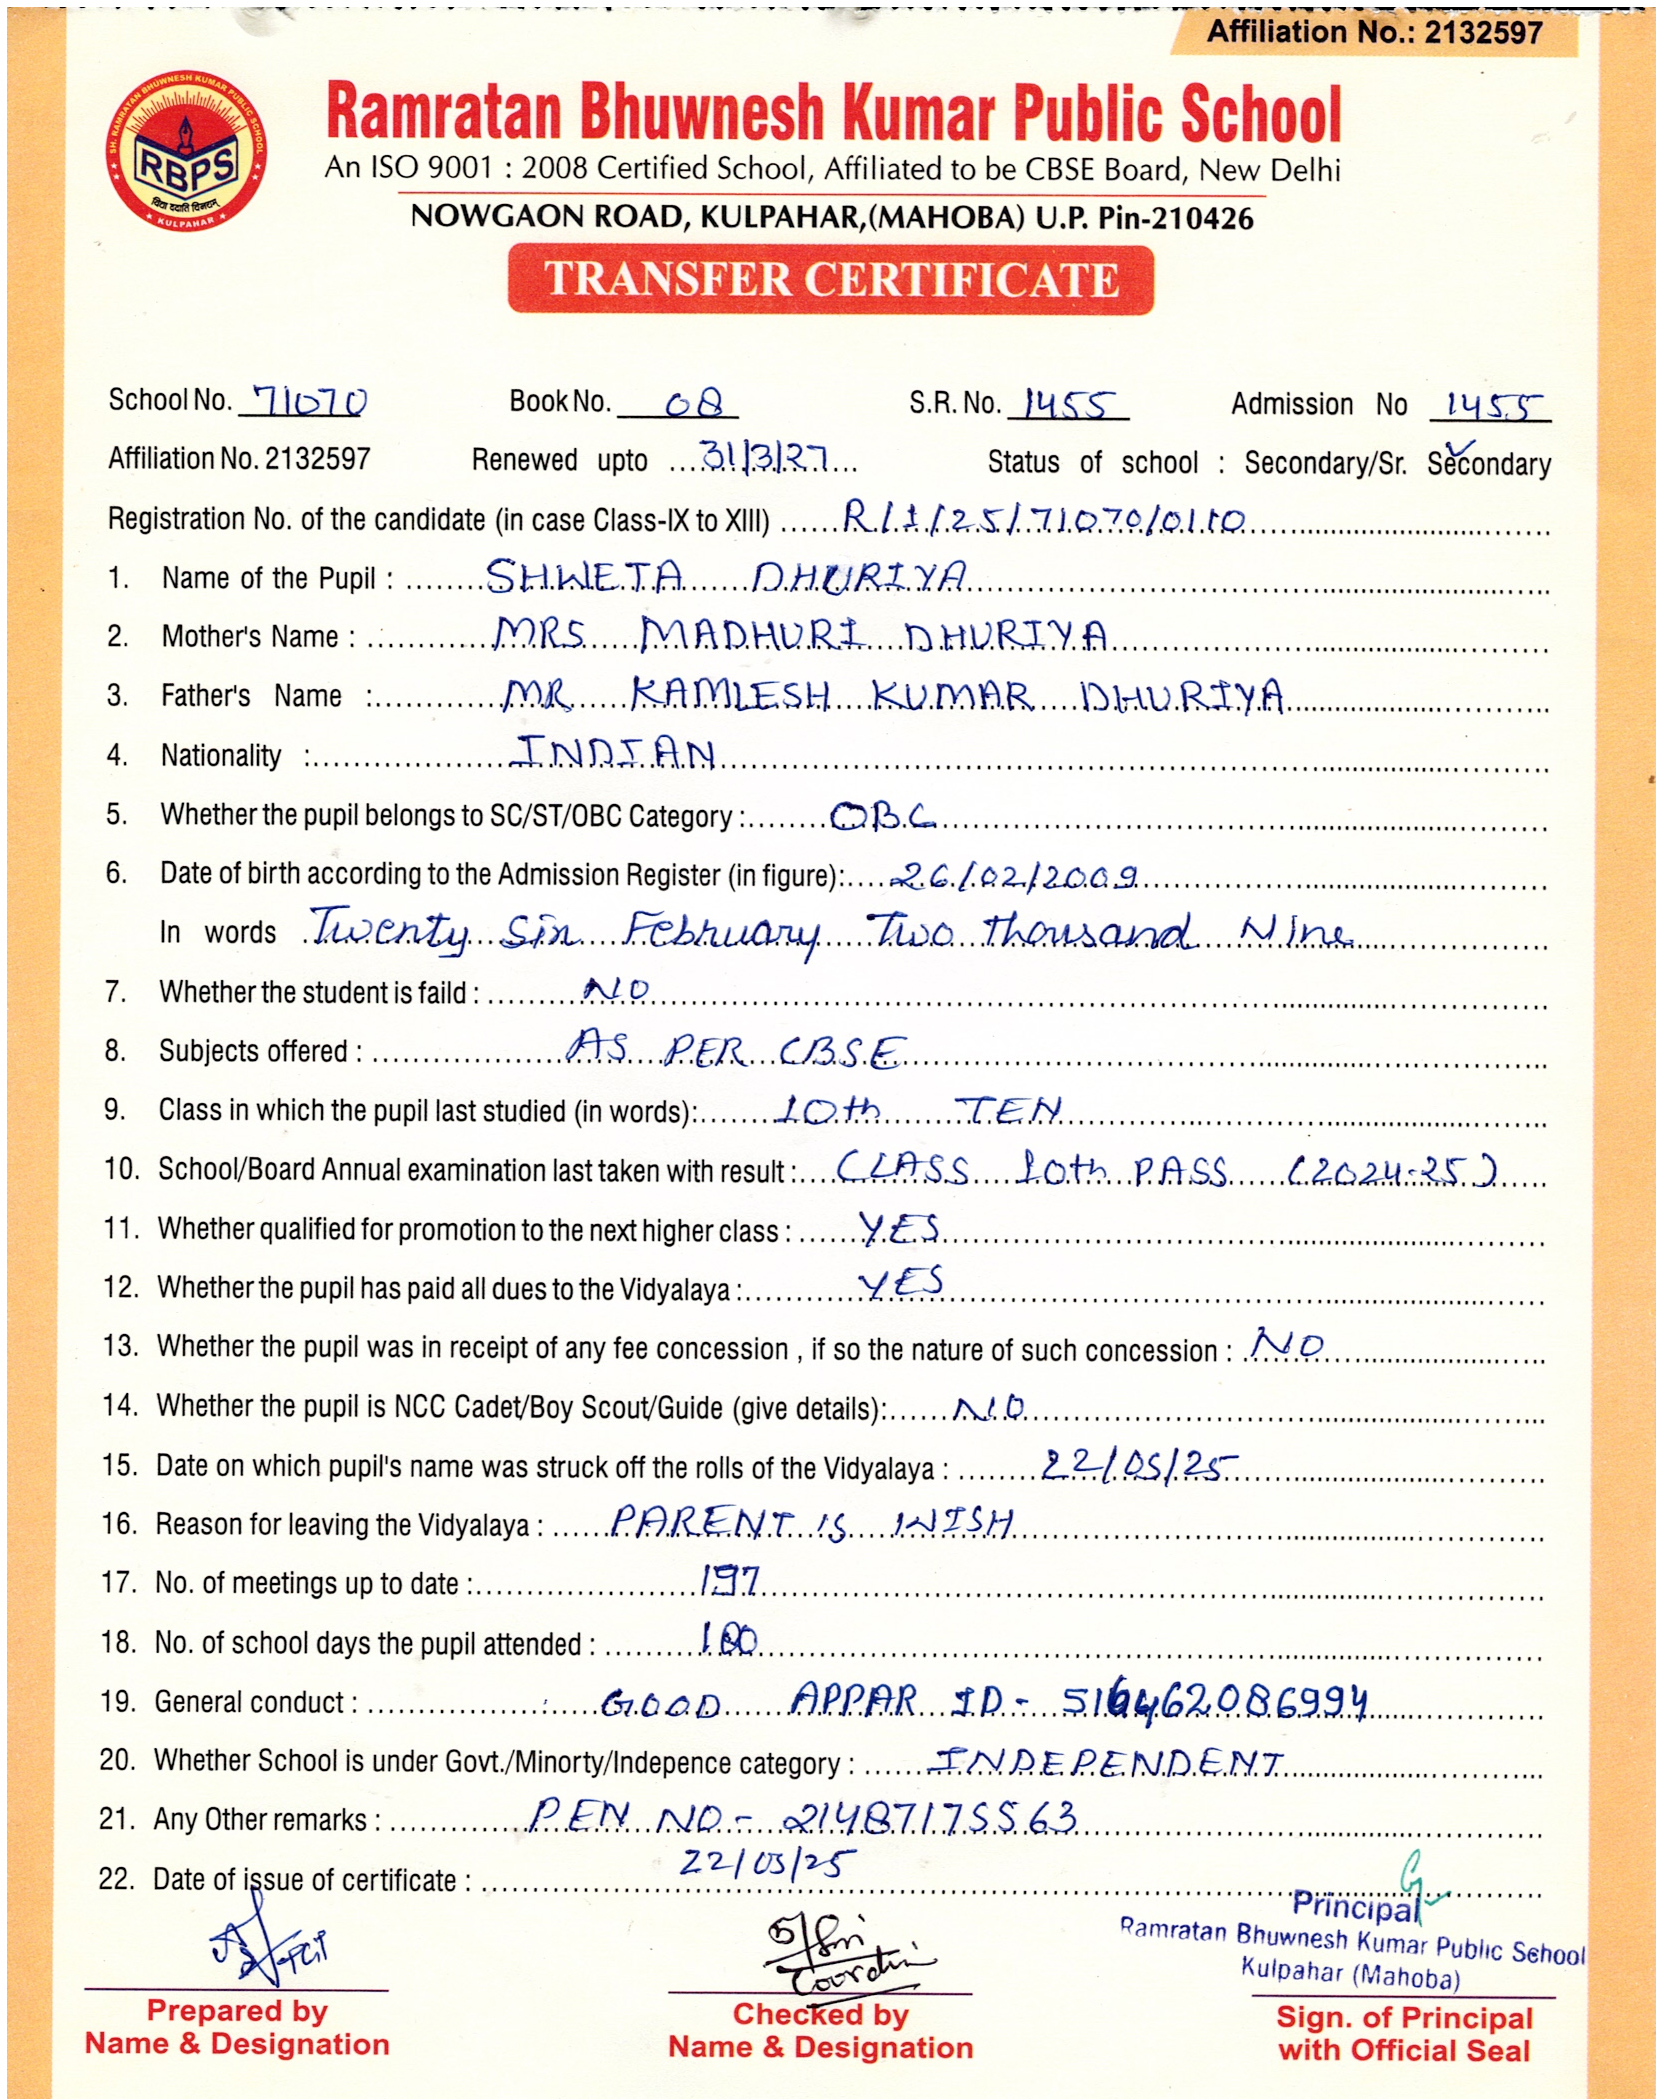 Affiliation No.: 2132597
SH. RAMRATAN BHUWNESH KUMAR PUBLIC SCHOOL
RBPS
विद्या ददाति विनयम्
KULPAHAR
Ramratan Bhuwnesh Kumar Public School
An ISO 9001 : 2008 Certified School, Affiliated to be CBSE Board, New Delhi
NOWGAON ROAD, KULPAHAR,(MAHOBA) U.P. Pin-210426
TRANSFER CERTIFICATE
School No. 71070 Book No. 08 S.R. No. 1455 Admission No 1455
Affiliation No. 2132597 Renewed upto 31/3/27 Status of school : Secondary/Sr. Secondary
Registration No. of the candidate (in case Class-IX to XIII) R/1/25/71070/0110
1. Name of the Pupil : SHWETA DHURIYA
2. Mother's Name : MRS MADHURI DHURIYA
3. Father's Name : MR KAMLESH KUMAR DHURIYA
4. Nationality : INDIAN
5. Whether the pupil belongs to SC/ST/OBC Category : OBC
6. Date of birth according to the Admission Register (in figure): 26/02/2009
In words Twenty Six February Two thousand Nine
7. Whether the student is faild : NO
8. Subjects offered : AS PER CBSE
9. Class in which the pupil last studied (in words): 10th TEN
10. School/Board Annual examination last taken with result : CLASS 10th PASS (2024-25)
11. Whether qualified for promotion to the next higher class : YES
12. Whether the pupil has paid all dues to the Vidyalaya : YES
13. Whether the pupil was in receipt of any fee concession , if so the nature of such concession : NO
14. Whether the pupil is NCC Cadet/Boy Scout/Guide (give details): NO
15. Date on which pupil's name was struck off the rolls of the Vidyalaya : 22/05/25
16. Reason for leaving the Vidyalaya : PARENT IS WISH
17. No. of meetings up to date : 197
18. No. of school days the pupil attended :
19. General conduct : GOOD APPAR ID - 516462086994
20. Whether School is under Govt./Minorty/Indepence category : INDEPENDENT
21. Any Other remarks : PEN NO - 21487175563
22. Date of issue of certificate : 22/05/25
Principal
Ramratan Bhuwnesh Kumar Public School
Kulpahar (Mahoba)
Prepared by
Name & Designation
Checked by
Name & Designation
Sign. of Principal
with Official Seal